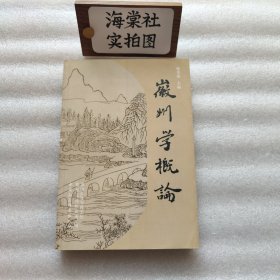 海棠社
实拍图
徽州学概論